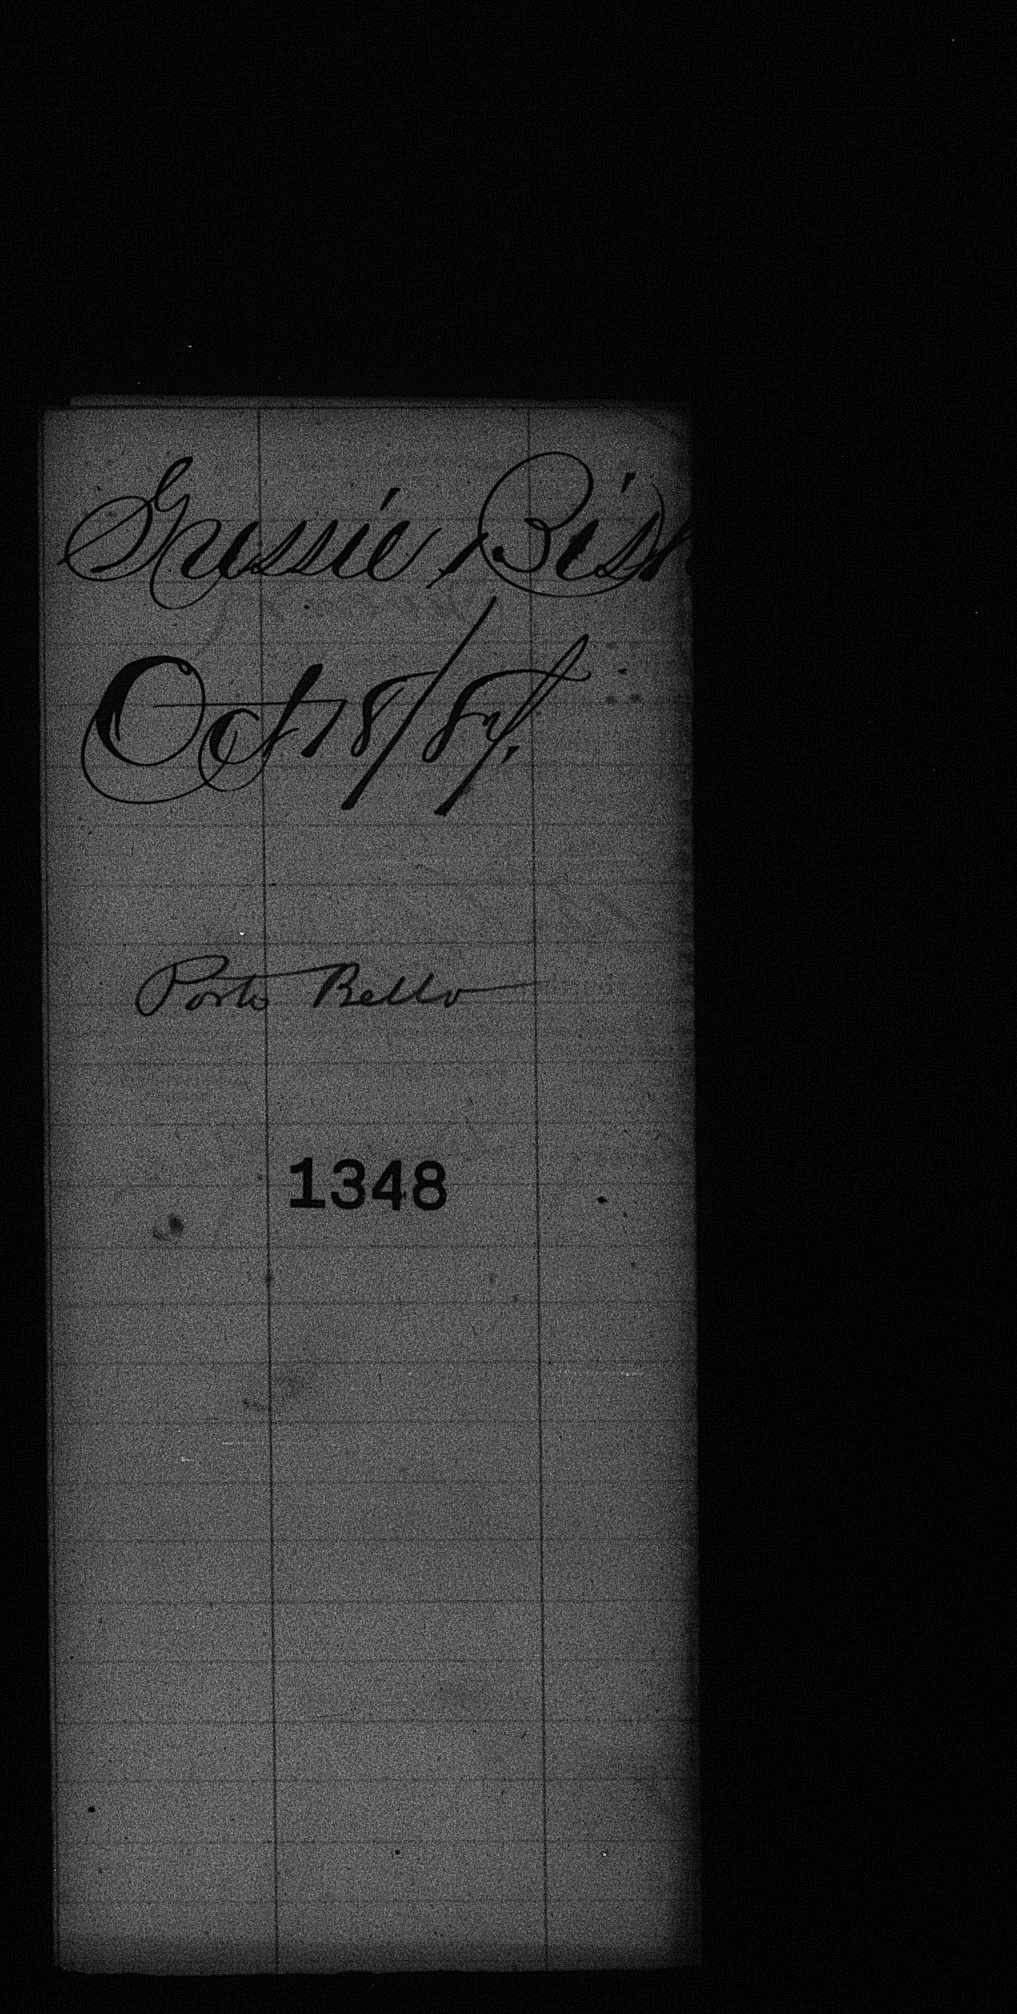 Gussie Bish
Oct 18/87.
Porto Bello
1348